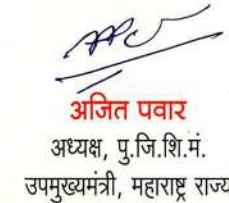 अजित पवार
अध्यक्ष, पु.जि.शि.मं.
उपमुख्यमंत्री, महाराष्ट्र राज्य